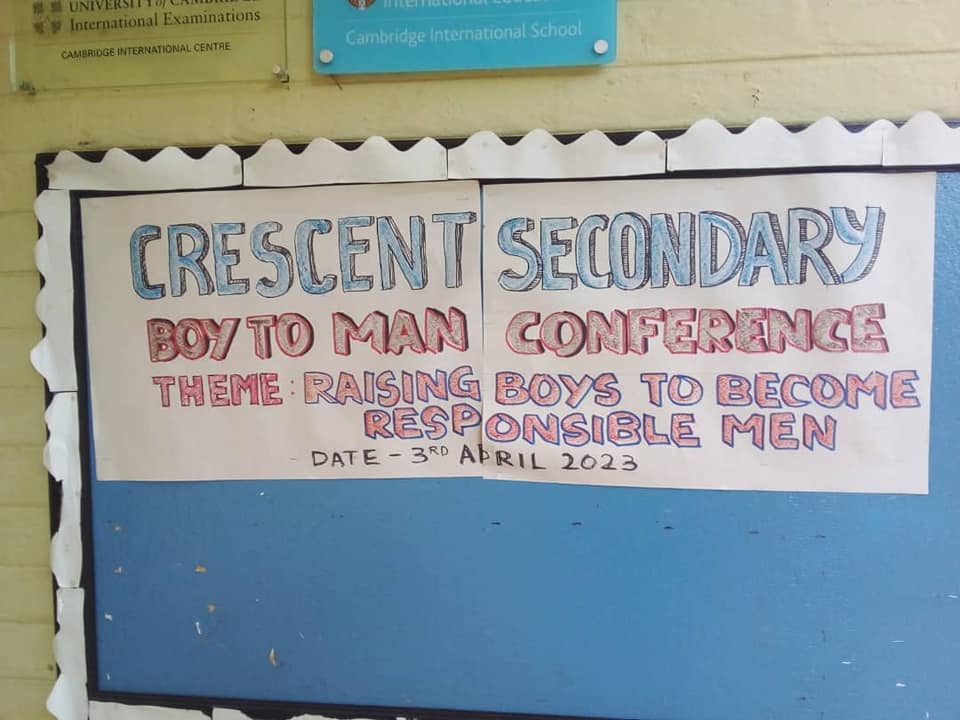 UNIVERSITY of CAMBRIDGE
International Examinations
CAMBRIDGE INTERNATIONAL CENTRE
International
Cambridge International School
CRESCENT SECONDARY
BOY TO MAN CONFERENCE
THEME: RAISING BOYS TO BECOME
RESPONSIBLE MEN
DATE - 3RD APRIL 2023